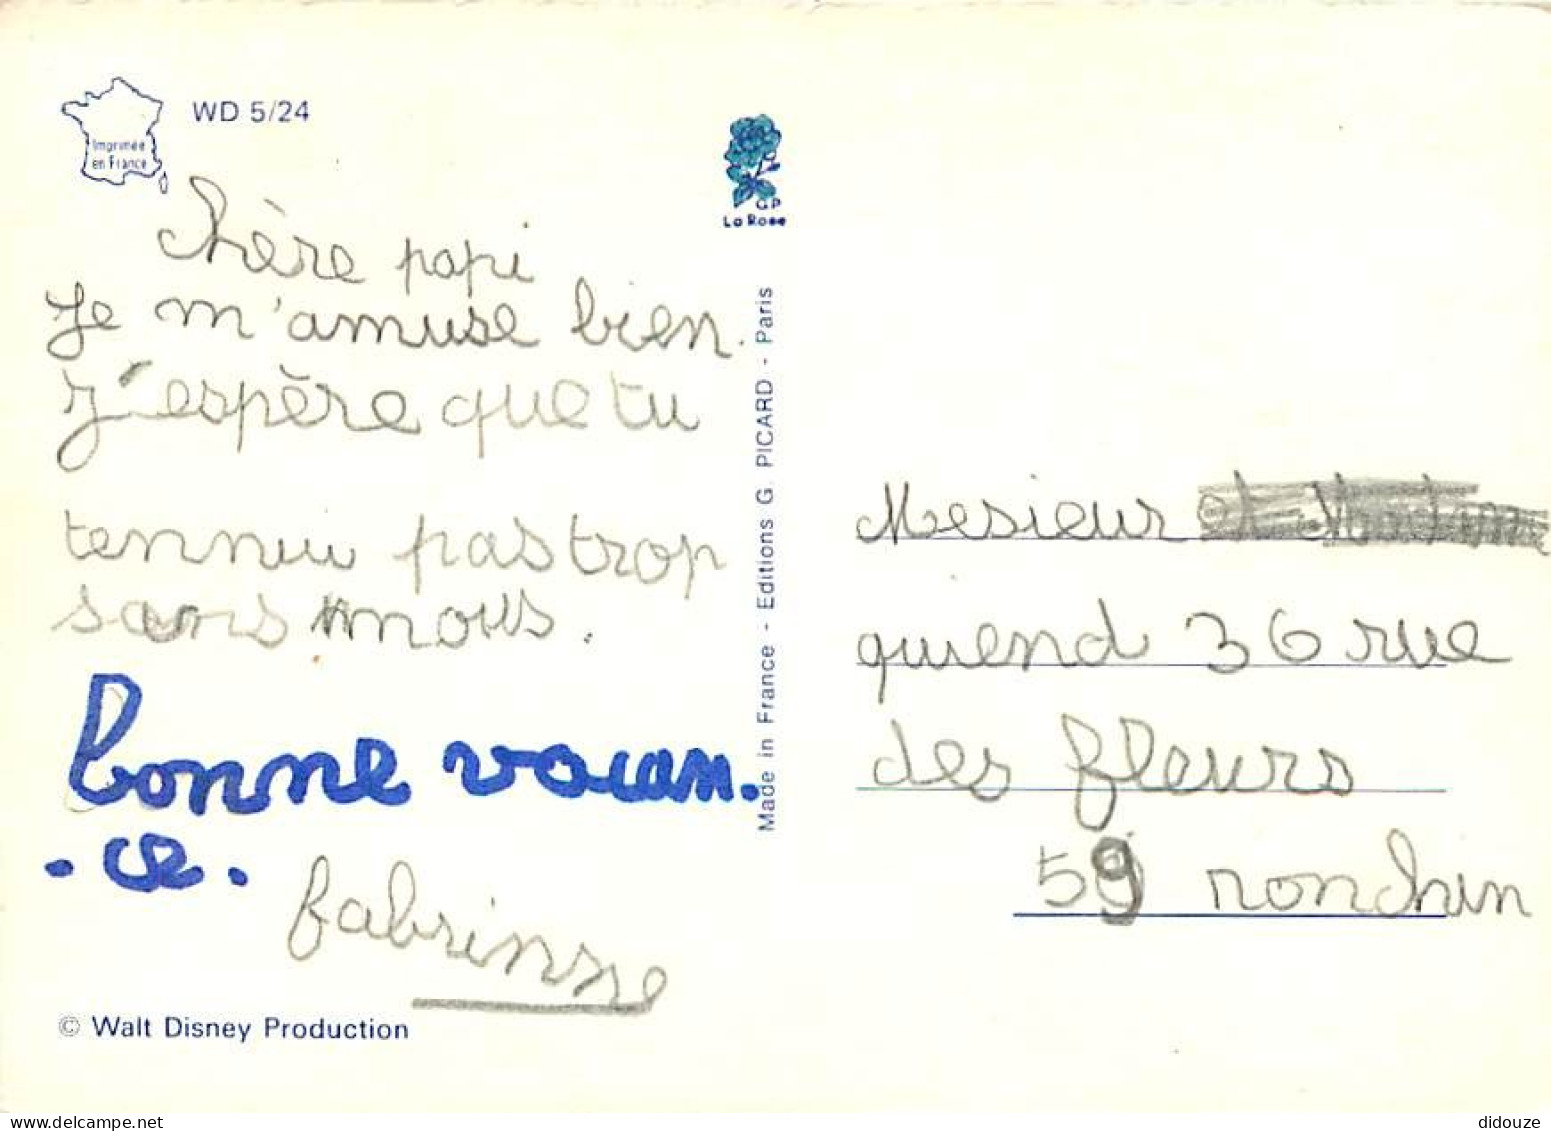 WD 5/24
Imprimée
en France
G.P
La Rose
Chère papi
Je m'amuse bien.
J'espère que tu
tennui pas trop
sans nous.
bonne vacan.
.ce.
fabrinne
© Walt Disney Production
Made in France - Editions G. PICARD - Paris
Mesieur
quiend 36 rue
des fleurs
59 ronchin
delcampe.net
didouze